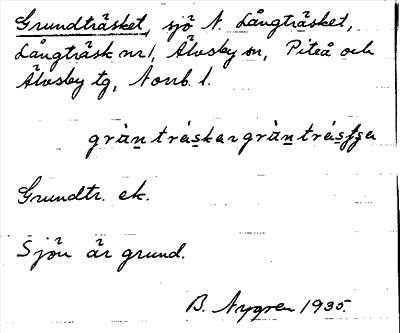 Grundträsket, sjö N. Långträsket,
Långträsk nr 1, Älvsby sn, Piteå och
Älvsby tg, Norrb. l.
Grundtr. ek.
Sjön är grund.
B. Nygren 1935.